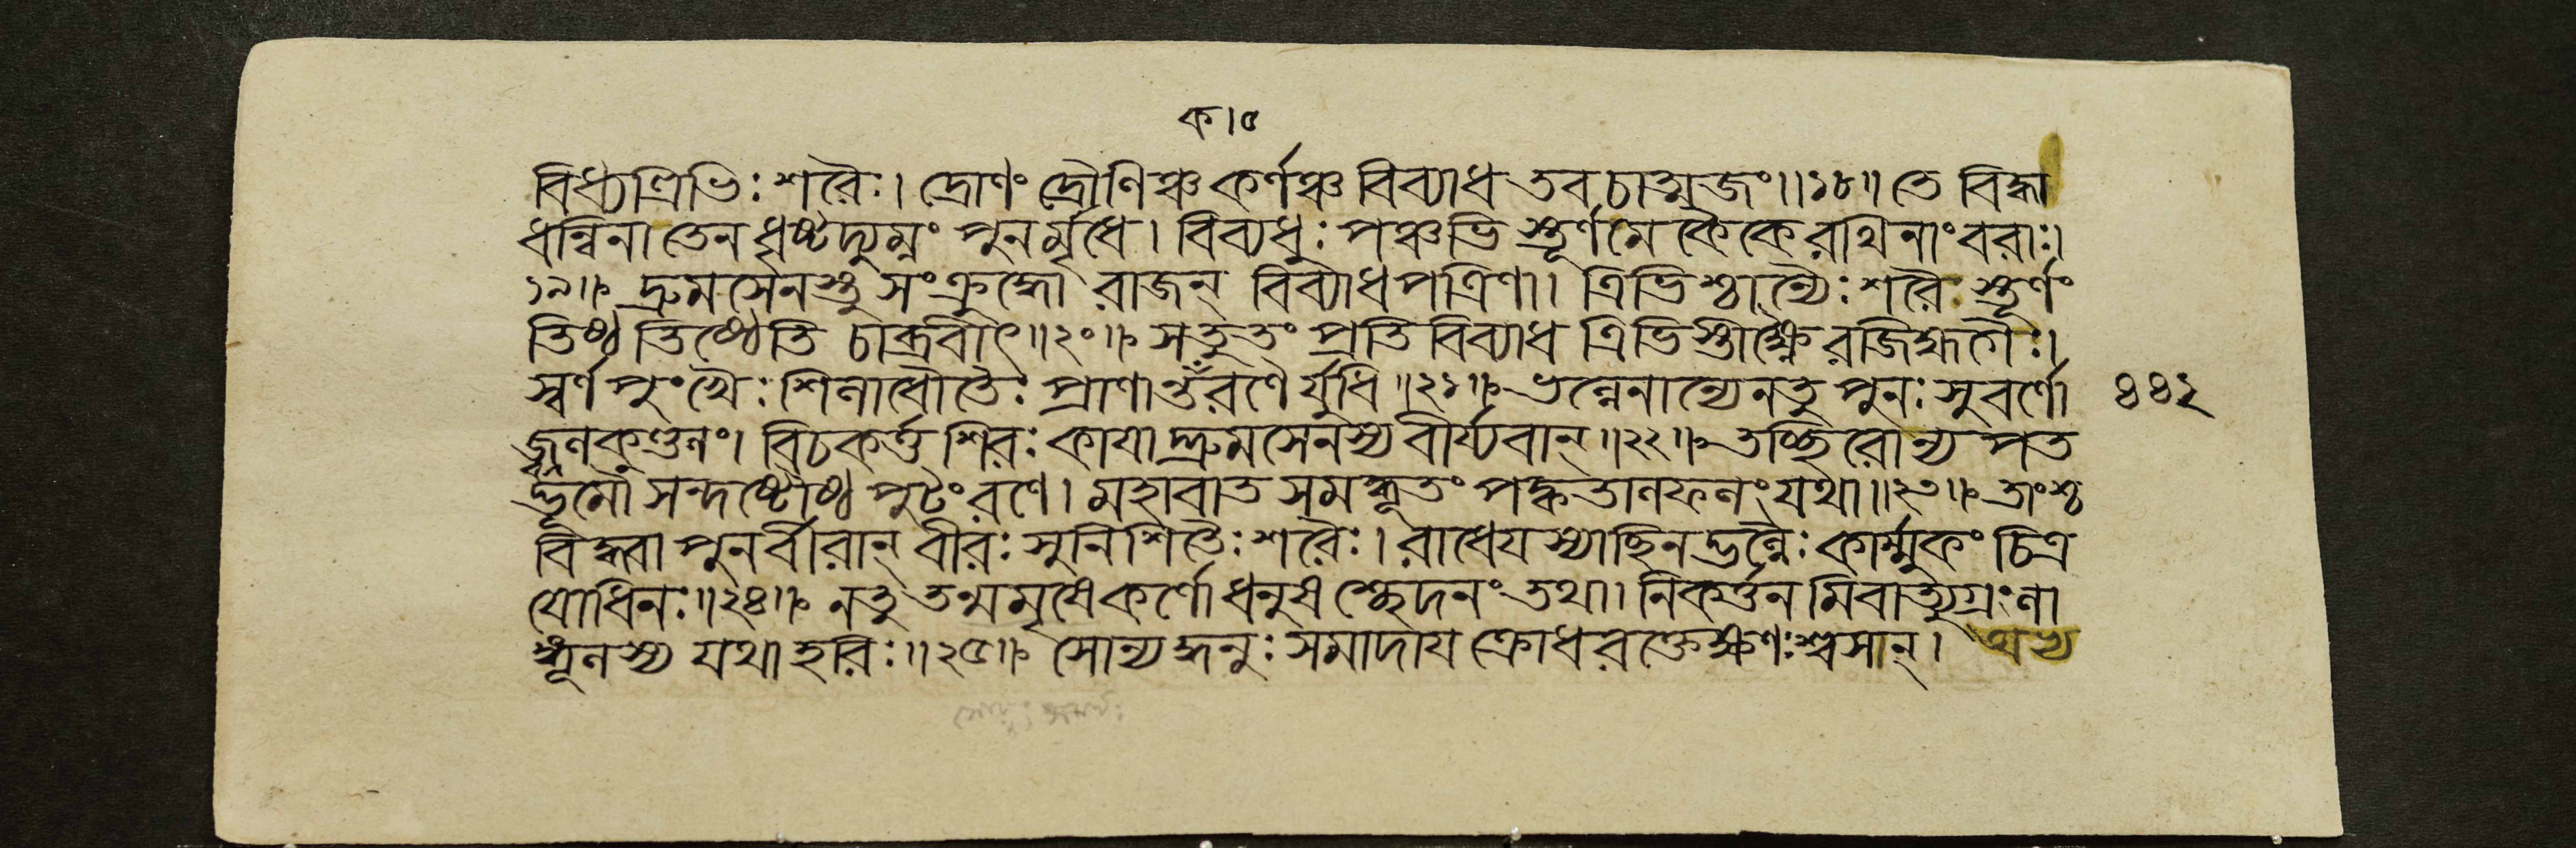 ক।৫
বিধ্যত্রিভিঃ শরৈঃ। দ্রোণং দ্রৌণিঞ্চ কর্ণঞ্চ বিব্যাধ তব চাত্মজং॥১৮॥ তে বিদ্ধা
ধন্বিনা তেন ধৃষ্টদ্যুম্নং পুনর্মৃধে। বিব্যধুঃ পঞ্চভি স্তূর্ণমেকৈকে রথিনাং বরাঃ।
১৯॥ দ্রুমসেনস্তু সংক্রুদ্ধো রাজন্ বিব্যাধ পত্রিণা। ত্রিভিশ্চান্যৈঃ শরৈ স্তূর্ণং
তিষ্ঠ তিষ্ঠেতি চাব্রবীৎ॥২০॥ স তু তং প্রতি বিব্যাধ ত্রিভিস্তীক্ষ্ণৈ রজিহ্মগৈঃ।
স্বর্ণপুংখৈঃ শিলাধৌতৈঃ প্রাণান্তকরণৈর্যুধি॥২১॥ ভল্লেনান্যেন তু পুনঃ সুবর্ণো
জ্জ্বলকুণ্ডলং। বিচকর্ত্ত শিরঃ কায়া দ্দ্রুমসেনস্য বীর্য্যবান্॥২২॥ তচ্ছিরোন্যপত
দ্ভূমৌ সন্দষ্টৌষ্ঠপুটং রণে। মহাবাত সমদ্ধূতং পক্বতালফলং যথা॥২৩॥ তাংশ্চ
বিদ্ধ্বা পুনর্বীরান্ বীরঃ সুনিশিতৈঃ শরৈঃ। রাধেয়স্যাচ্ছিনদ্ভল্লৈঃ কার্ম্মুকং চিত্র
যোধিনঃ॥২৪॥ ন তু তন্মমৃষে কর্ণো ধনুষশ্ছেদনং তথা। নিকর্ত্তনমিবাত্যুগ্রঃ লা
ঙ্গূলস্য যথা হরিঃ॥২৫॥ সোন্যদ্ধনুঃ সমাদায় ক্রোধরক্তেক্ষণঃ শ্বসান্। অভ্য
৪৪২